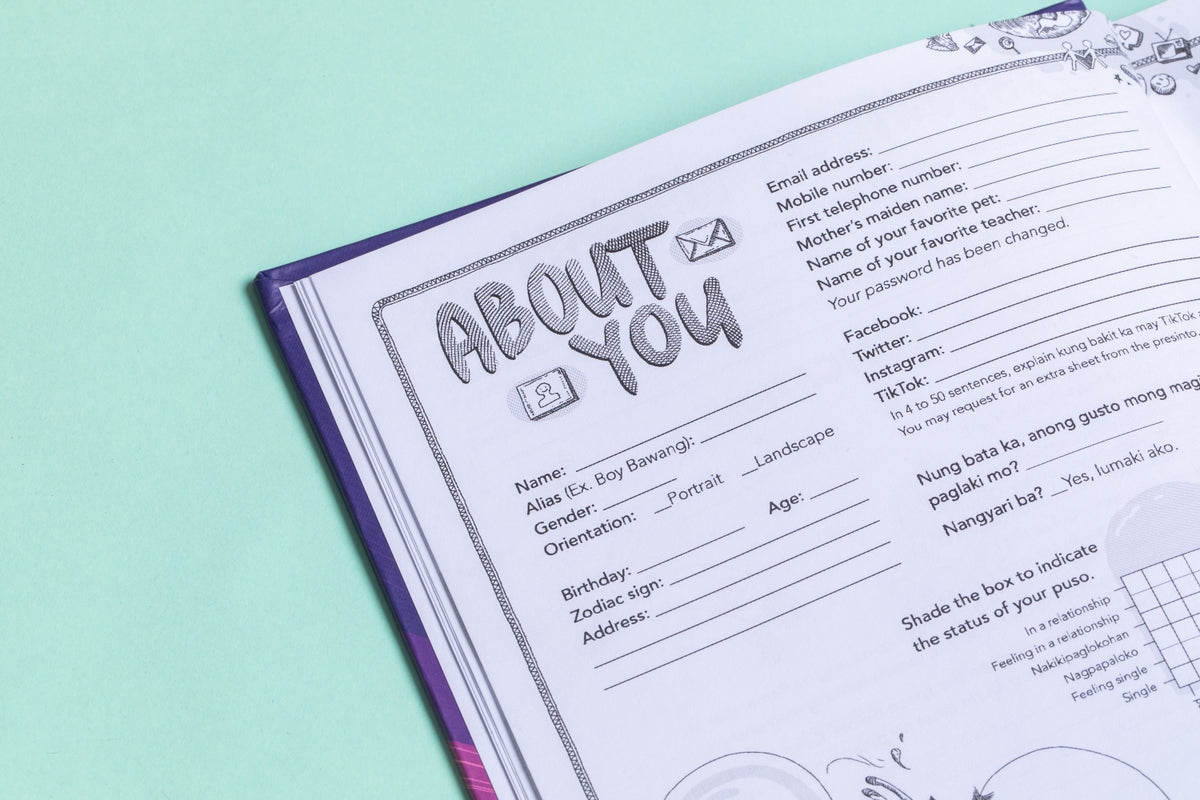 ABOUT
YOU
Name:
Alias (Ex. Boy Bawang):
Gender:
Orientation: __Portrait __Landscape
Birthday: Age:
Zodiac sign:
Address:
Email address:
Mobile number:
First telephone number:
Mother's maiden name:
Name of your favorite pet:
Name of your favorite teacher:
Your password has been changed.
Facebook:
Twitter:
Instagram:
TikTok:
In 4 to 50 sentences, explain kung bakit ka may TikTok
You may request for an extra sheet from the presinto.
Nung bata ka, anong gusto mong magi
paglaki mo?
Nangyari ba? __Yes, lumaki ako.
Shade the box to indicate
the status of your puso.
In a relationship
Feeling in a relationship
Nakikipaglokohan
Nagpapaloko
Feeling single
Single